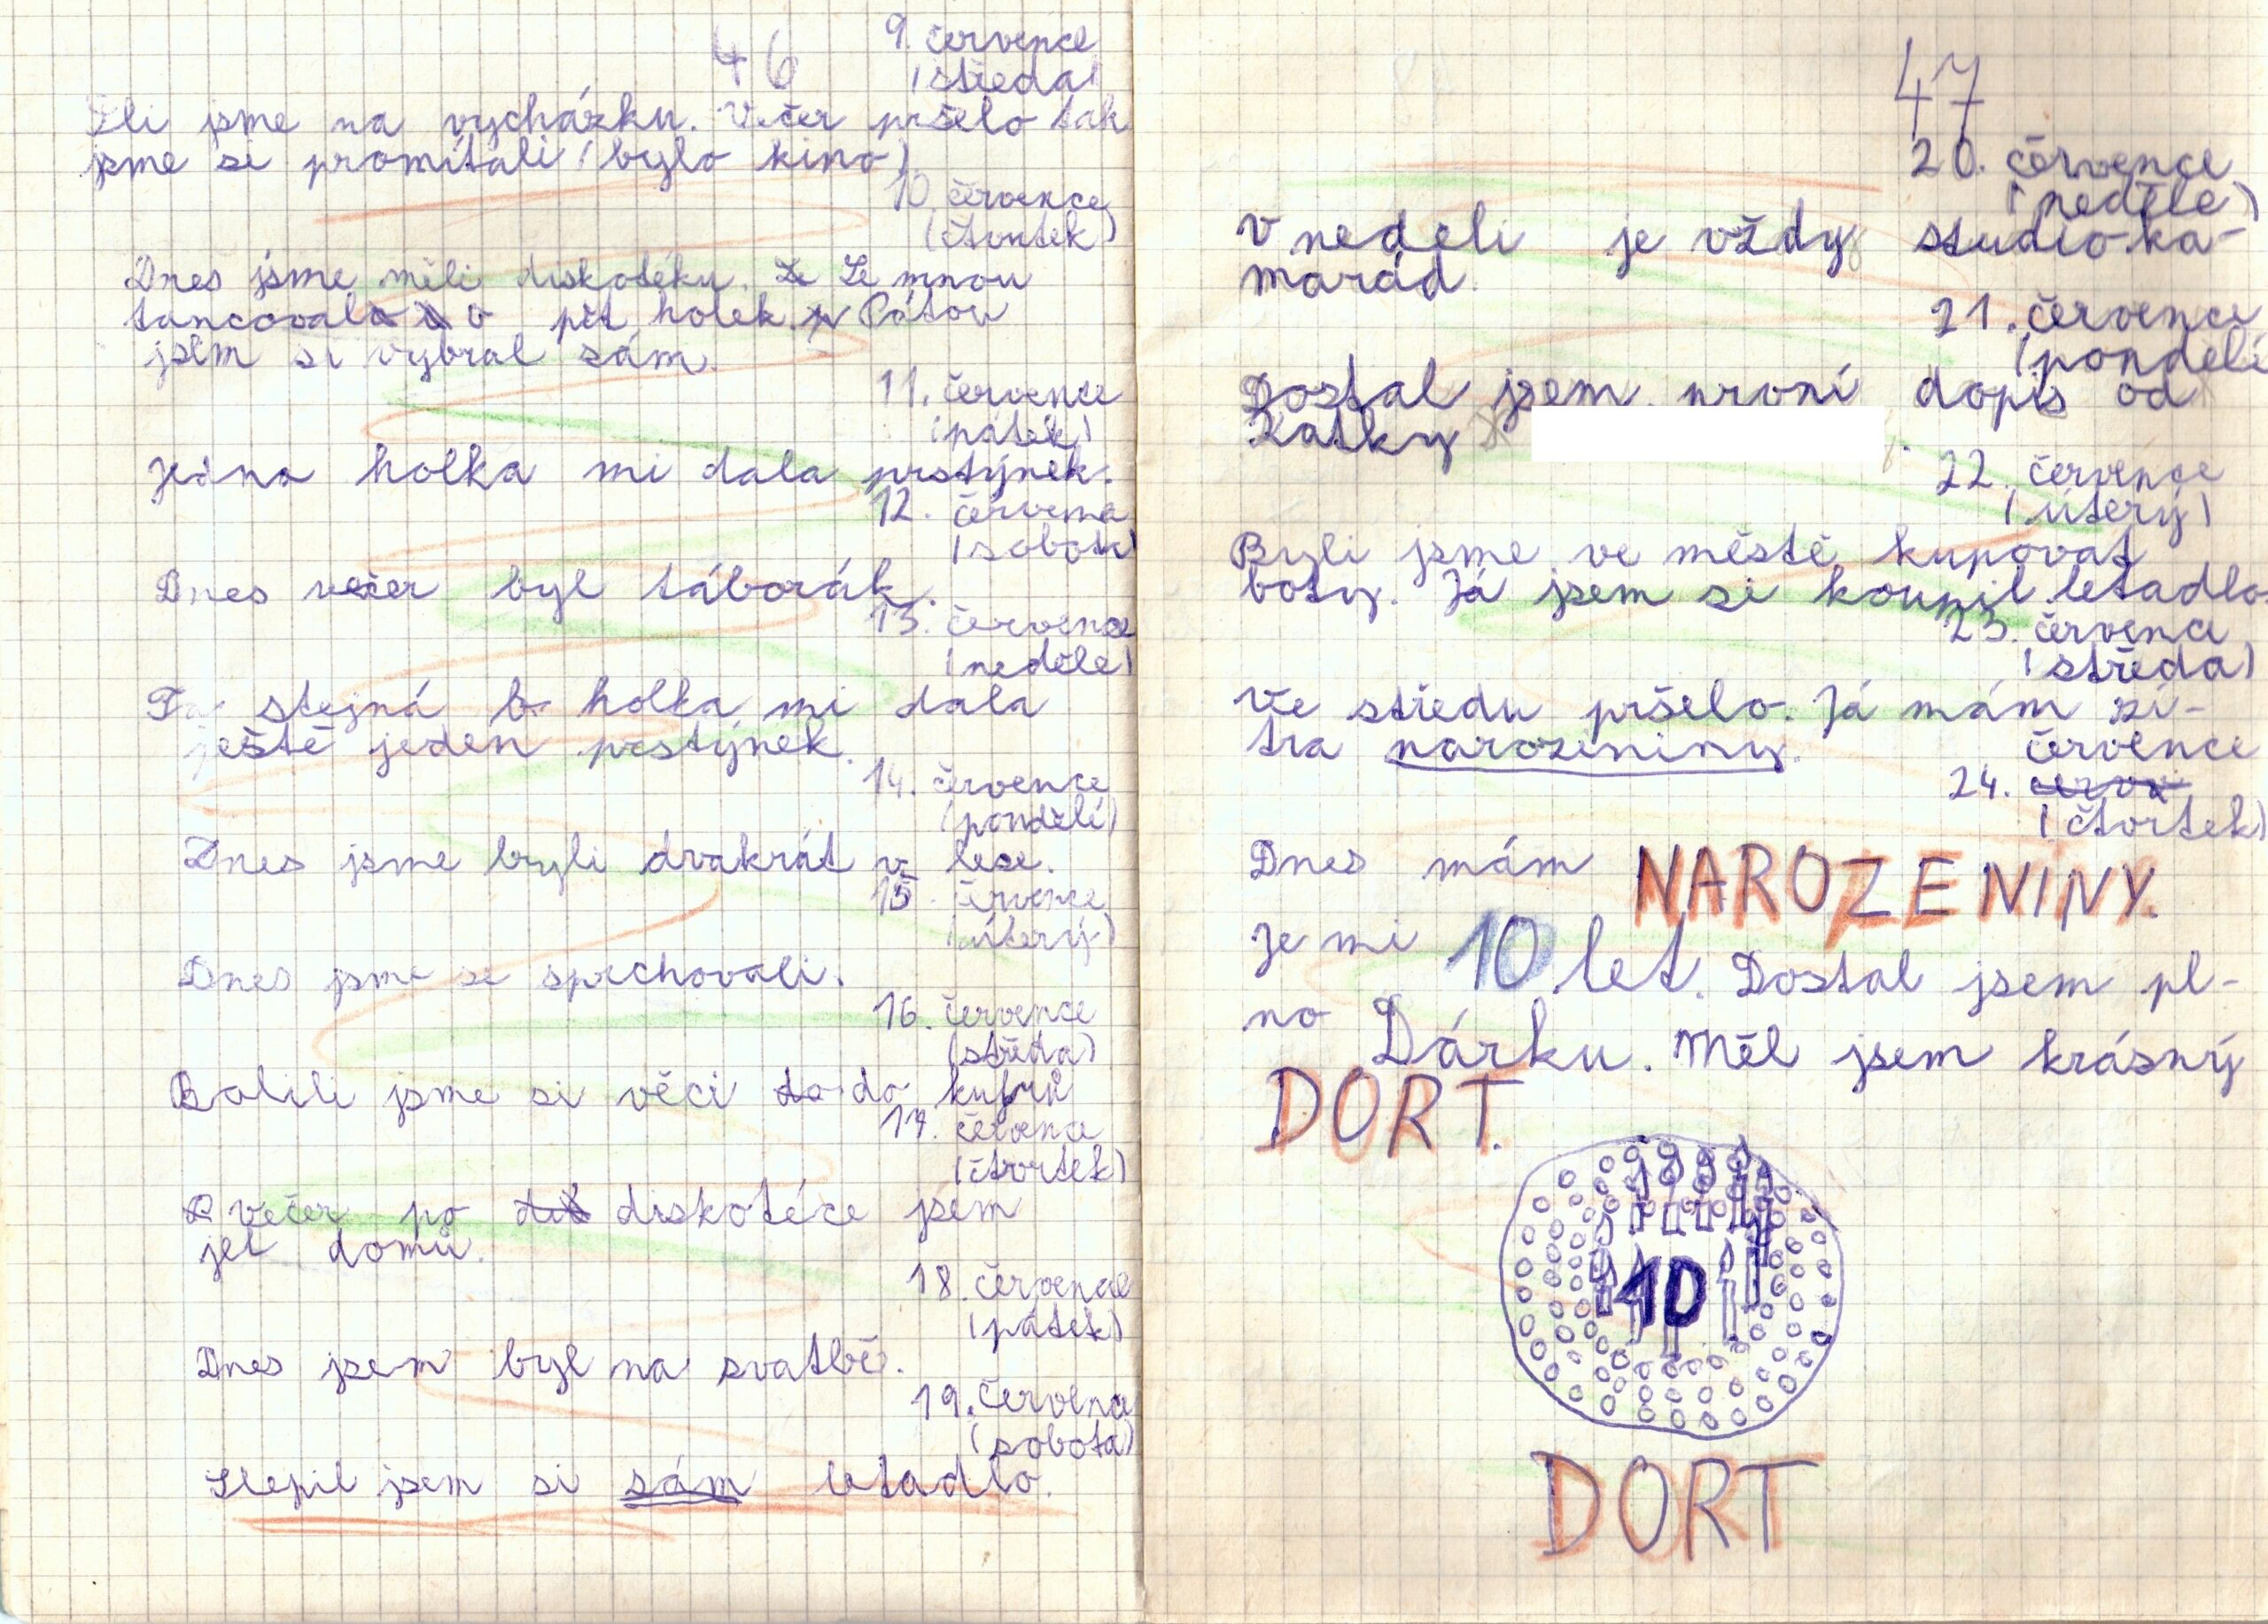 46
9. července
(středa)
Šli jsme na vycházku. Večer pršelo tak
jsme si promítali (bylo kino)
10. července
(čtvrtek)
Dnes jsme měli diskotéku. Se mnou
tancovalo pět holek. Pátou
jsem si vybral sám.
11. července
(pátek)
Jedna holka mi dala prstýnek.
12. července
(sobota)
Dnes večer byl táborák.
13. července
(neděle)
Ta stejná holka mi dala
ještě jeden prstýnek.
14. července
(pondělí)
Dnes jsme byli dvakrát v lese.
15. července
(úterý)
Dnes jsme se sprchovali.
16. července
(středa)
Balili jsme si věci do kufrů
17. července
(čtvrtek)
večer po diskotéce jsem
jel domů.
18. července
(pátek)
Dnes jsem byl na svatbě.
19. července
(sobota)
Slepil jsem si sám letadlo.
47
20. července
(neděle)
V nedeli je vždy studio ka-
marád.
21. července
(pondělí
Dostal jsem první dopis od
Katky
22. července
(úterý)
Byli jsme ve městě kupovat
boty. Já jsem si koupil letadlo
23. července
(středa)
Ve středu pršelo. Já mám zí-
tra narozeniny.
července
24.
(čtvrtek)
Dnes mám NAROZENINY.
Je mi 10 let. Dostal jsem pl-
no Dárku. Měl jsem krásný
DORT.
10
DORT